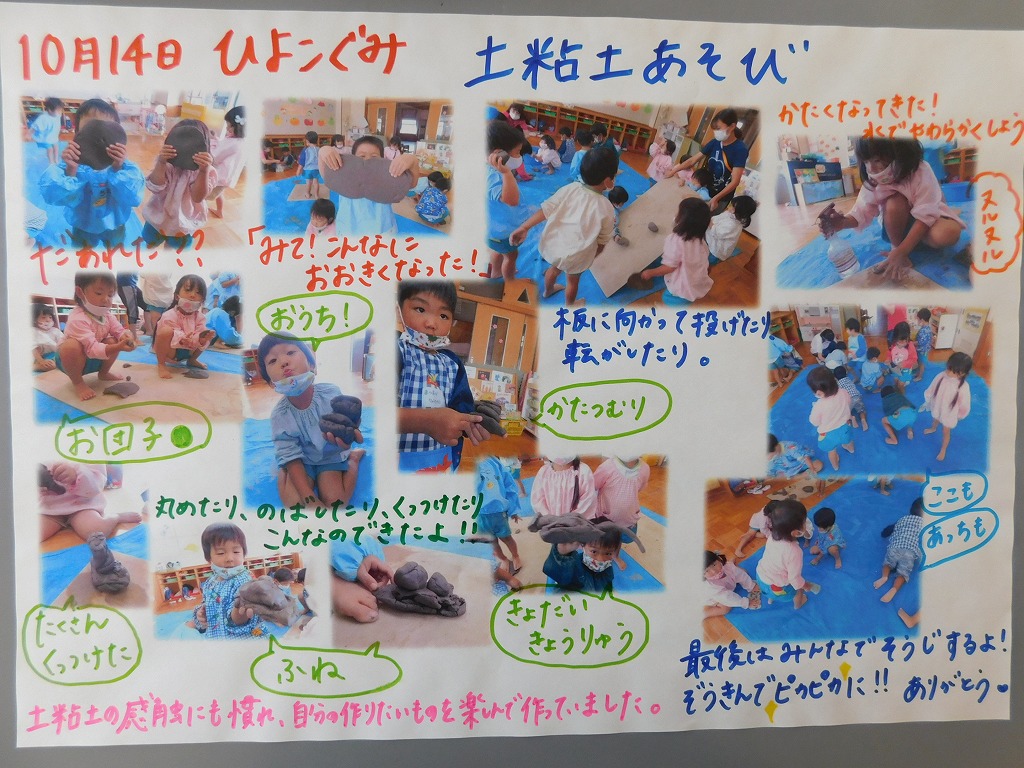 10月14日 ひよこぐみ
土粘土あそび
だあれだ??
「みて!こんなに
おおきくなった!」
板に向かって投げたり
転がしたり。
かたくなってきた!
水でやわらかくしよう
ヌルヌル
ヌル
お団子
おうち!
かたつむり
丸めたり、のばしたり、くっつけたり
こんなのできたよ!!
たくさん
くっつけた
ふね
きょだい
きょうりゅう
ここも
あっちも
最後はみんなでそうじするよ!
ぞうきんでピカピカに!! ありがとう。
土粘土の感触にも慣れ、自分の作りたいものを楽しんで作っていました。